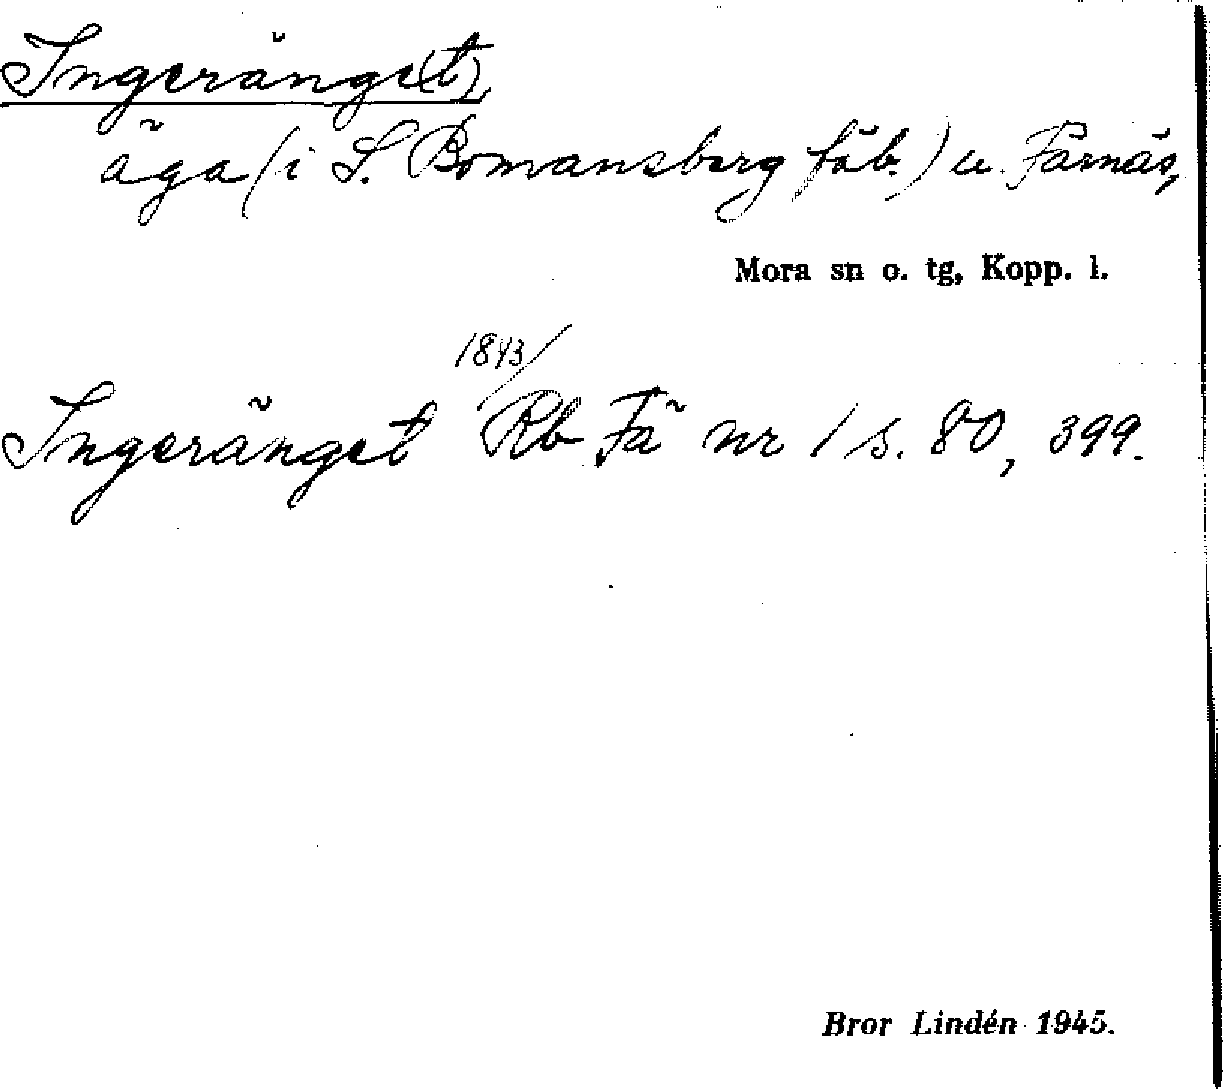 Ingeränge(t),
äga (i S. Bomansberg fäb.) u. Färnäs,
Mora sn o. tg, Kopp. l.
1843/
Ingeränget Rb Fä nr 1 s. 80, 399.
Bror Lindén 1945.